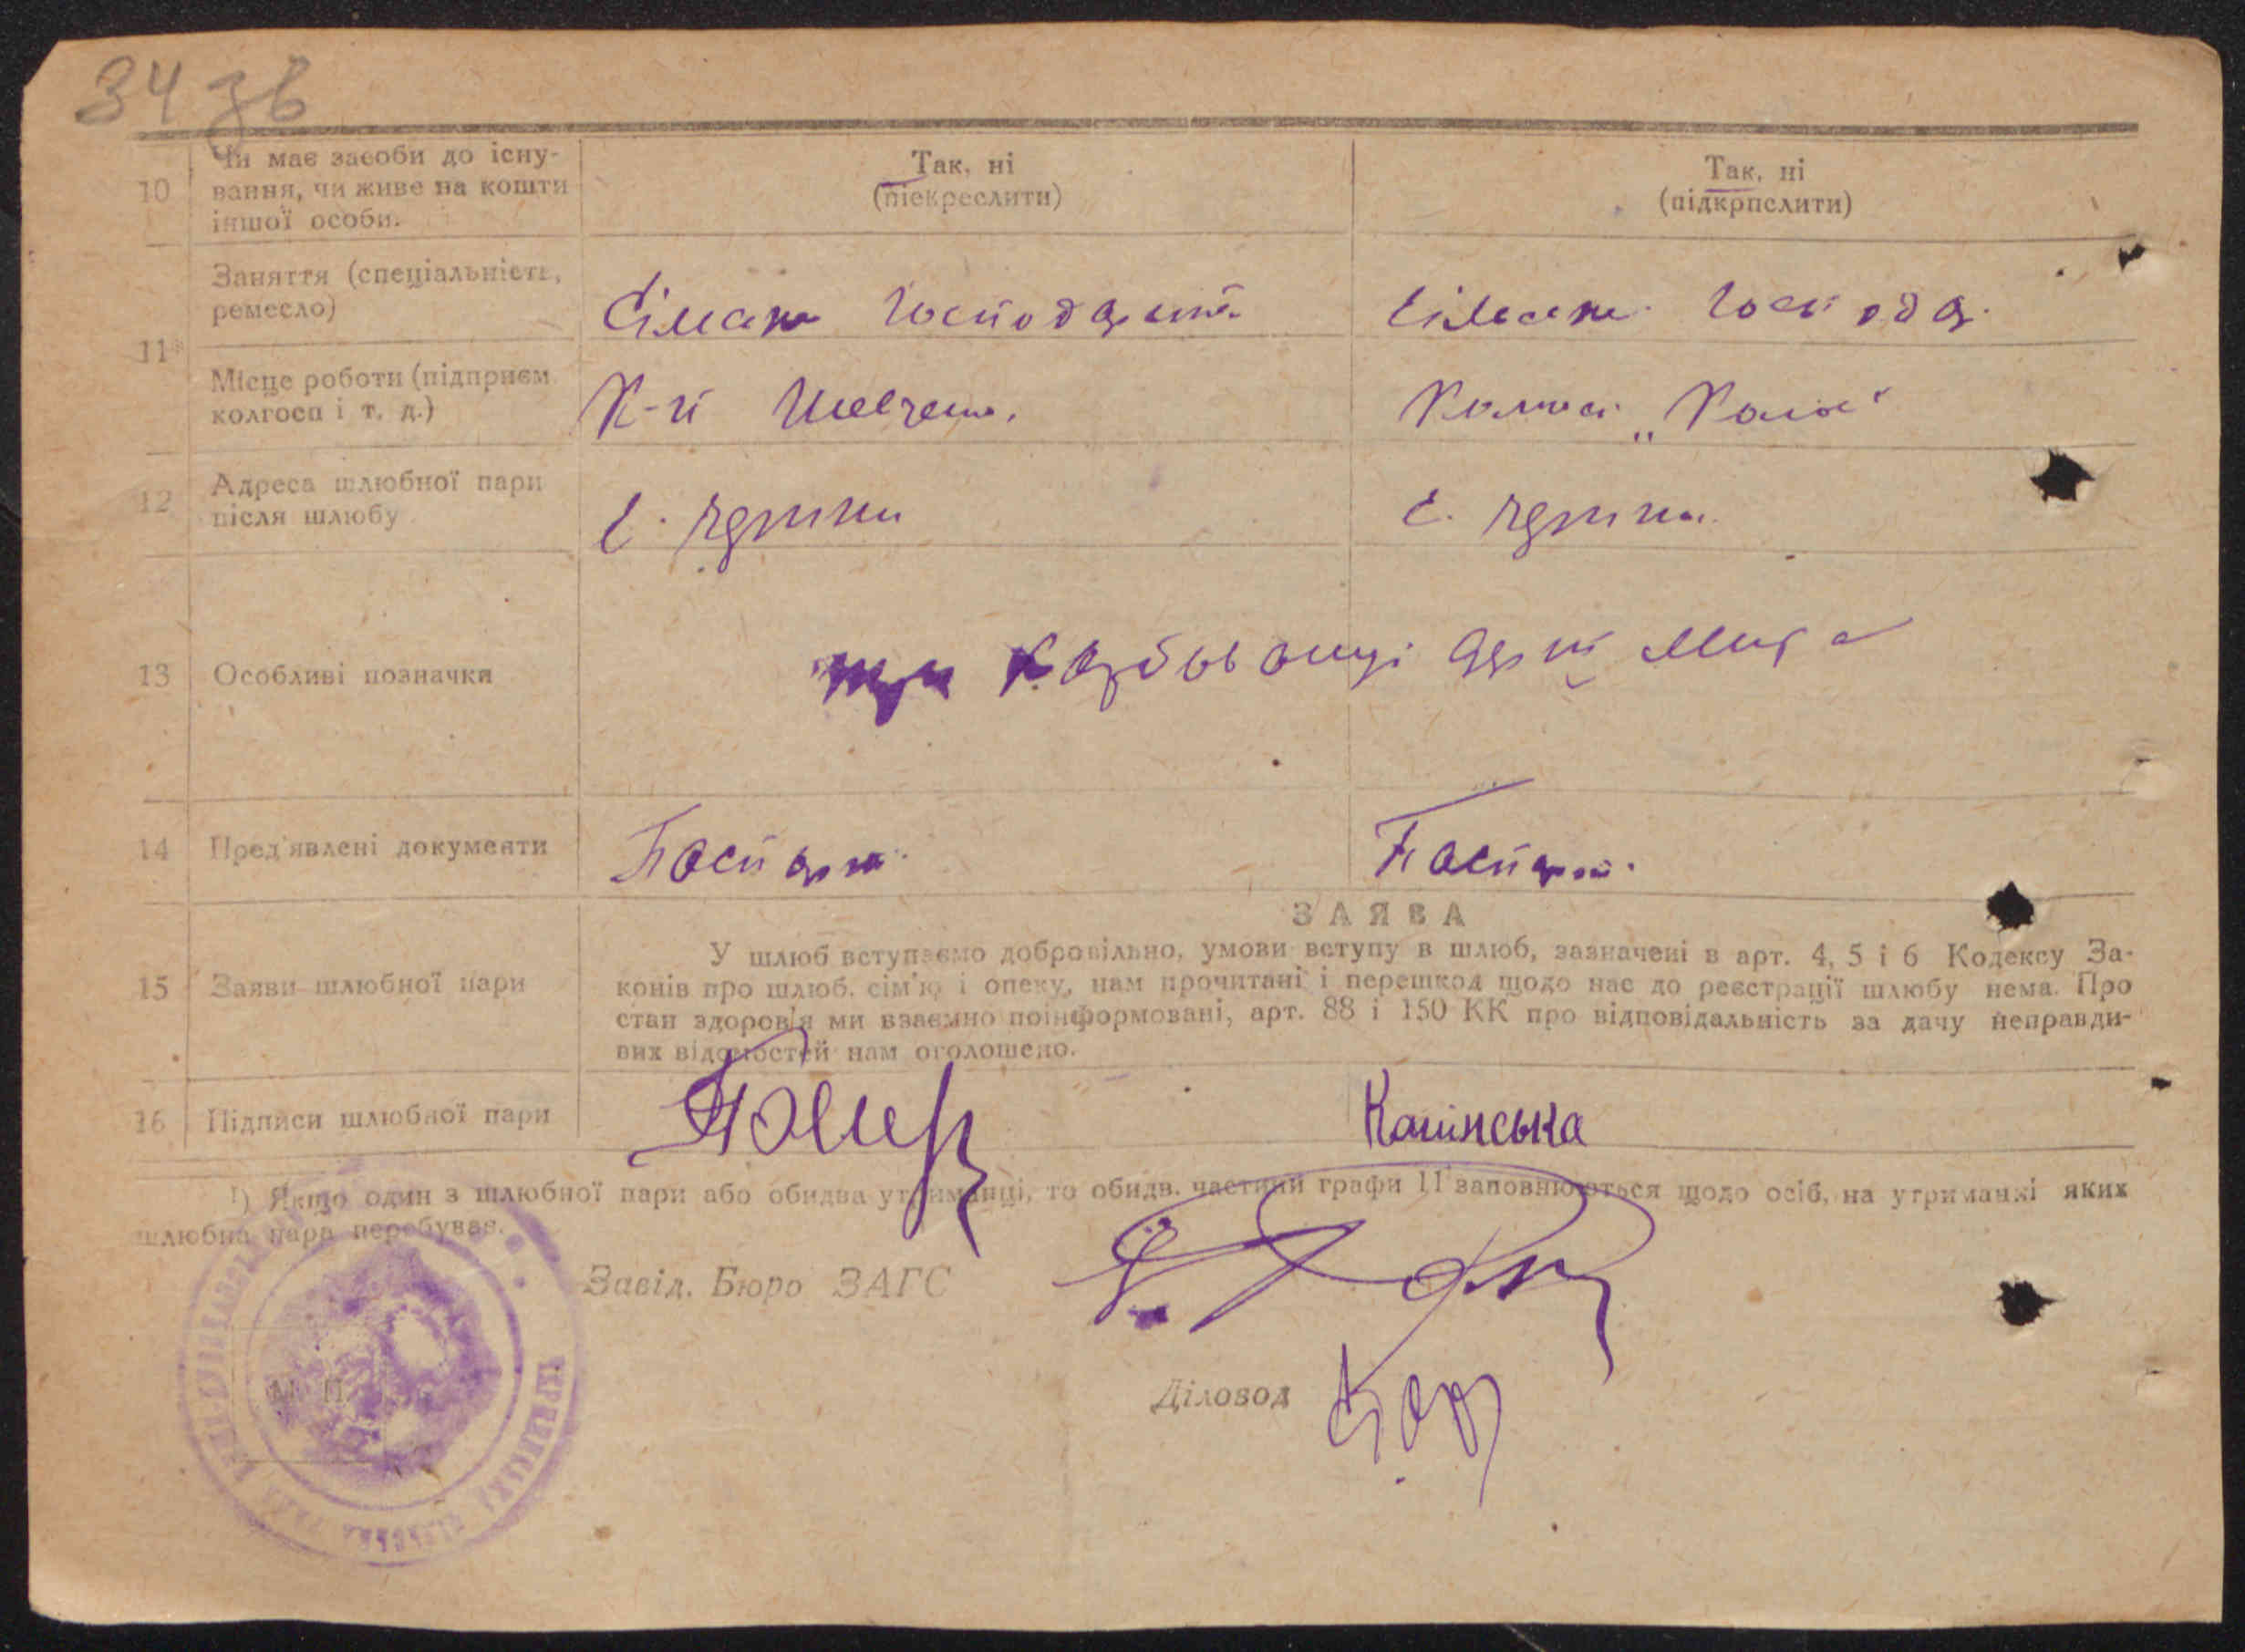 34 зв
10 Чи має засоби до існу-
вання, чи живе на кошти
іншої особи.
Так, ні
(піекреслити)
Так, ні
(підкрпслити)
11
Заняття (спеціальність,
ремесло)
Сільськ господарст.
Сільськ. господар.
Місце роботи (підприєм.
колгосп і т. д.)
К-п Шевченк.
Колгосп
12 Адреса шлюбної пари
після шлюбу
с.
с.
13 Особливі позначки
карбованці
14 Пред'явлені документи
Паспорт.
Паспорт.
ЗАЯВА
15 Заяви шлюбної пари
У шлюб вступаємо добровільно, умови вступу в шлюб, зазначені в арт. 4, 5 і 6 Кодексу За-
конів про шлюб. сім'ю і опеку, нам прочитані і перешкод щодо нас до реєстрації шлюбу нема. Про
стан здоров'я ми взаємно поінформовані, арт. 88 і 150 КК про відповідальність за дачу неправди-
вих відомостей нам оголошено.
16 Підписи шлюбної пари
Камінська
1) Якщо один з шлюбної пари або обидва утриманці, то обидв. частини графи 11 заповнюються щодо осіб, на утриманні яких
шлюбна пара перебуває.
Завід. Бюро ЗАГС
М. П.
Діловод